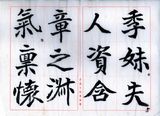 季妹夫
人資含
章之淋
氣稟懷